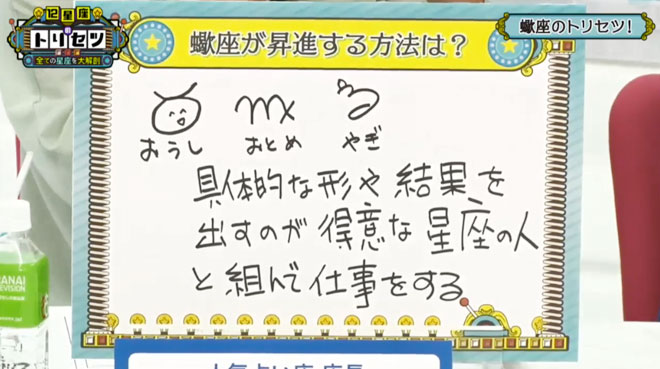 12星座
トリセツ
全ての星座を大解剖
蠍座のトリセツ!
蠍座が昇進する方法は?
おうし おとめ やぎ
具体的な形や結果を
出すのが得意な星座の人
と組んで仕事をする
人気占い師